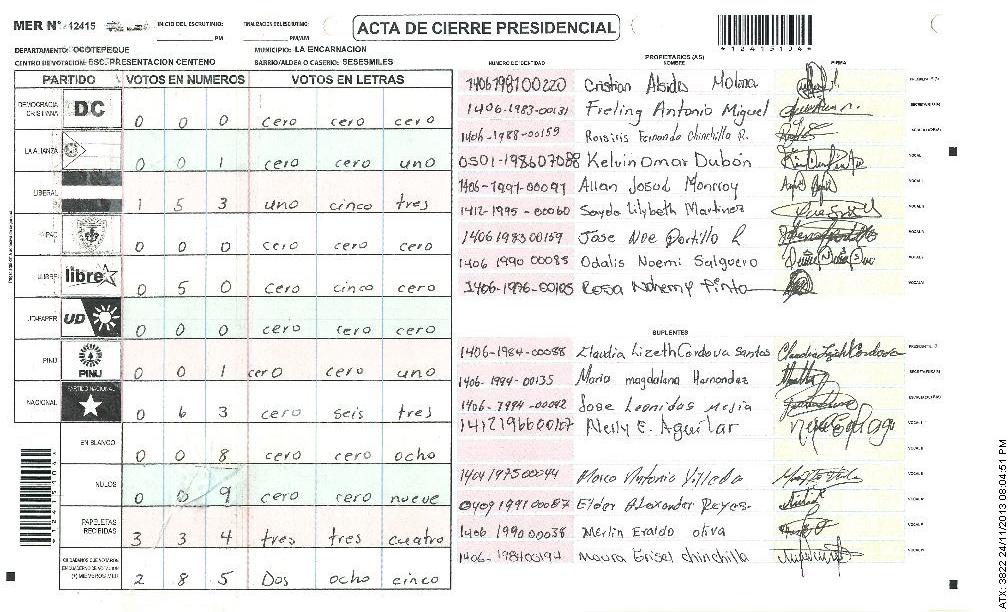 MER N° 12415 INICIO DEL ESCRUTINIO: PM FINALIZACION DEL ESCRUTINIO: PM/AM ACTA DE CIERRE PRESIDENCIAL
DEPARTAMENTO: OCOTEPEQUE MUNICIPIO: LA ENCARNACION
CENTRO DE VOTACION: ESC. PRESENTACION CENTENO BARRIO/ALDEA O CASERIO: SESESMILES
PARTIDO VOTOS EN NUMEROS VOTOS EN LETRAS
DEMOCRACIA CRISTIANA DC 0 0 0 cero cero cero
LA ALIANZA 0 0 1 cero cero uno
LIBERAL 1 5 3 uno cinco tres
PAC 0 0 0 cero cero cero
LIBRE libre 0 5 0 cero cinco cero
UD-FAPER UD 0 0 0 cero cero cero
PINU PINU 0 0 1 cero cero uno
NACIONAL PARTIDO NACIONAL 0 6 3 cero seis tres
EN BLANCO 0 0 8 cero cero ocho
NULOS 0 0 9 cero cero nueve
PAPELETAS RECIBIDAS 3 3 4 tres tres cuatro
CIUDADANOS QUE VOTARON EN CUADERNO DE VOTACION (+) MIEMBROS MER 2 8 5 Dos ocho cinco
PROPIETARIOS (AS)
NUMERO DE IDENTIDAD NOMBRE FIRMA
1406198100220 Cristian Abides Molina
1406-1983-00131 Freling Antonio Miguel
1406-1988-00159 Roisiris Fernanda Chinchilla R.
0501-198607088 Kelvin Omar Dubón VOCAL
1406-1991-00097 Allan Josué Monrroy VOCAL
1412-1995-00060 Sayda Lilybeth Martinez VOCAL
1406198300159 Jose Noe Portillo R VOCAL
1406 1990 00085 Odalis Noemi Salguero VOCAL
1406-1976-00105 Rosa Nohemy Pinto VOCAL
SUPLENTES
1406-1984-00088 Claudia Lizeth Cordova Santos Claudia Lizeth Cordova
1406-1994-00135 Maria magdalana Hernandez
1406-1994-00042 Jose Leonidas Mejia
1412196600107 Nelly E. Aguilar VOCAL
1401197500044 Marco Antonio Villeda VOCAL
0409199100087 Elder Alexander Reyes VOCAL
1406 1990 00038 Merlin Eraldo oliva VOCAL
1406-198400194 Maura Erisel chinchilla VOCAL
ATX: 3822 24/11/2013 08:04:51 PM